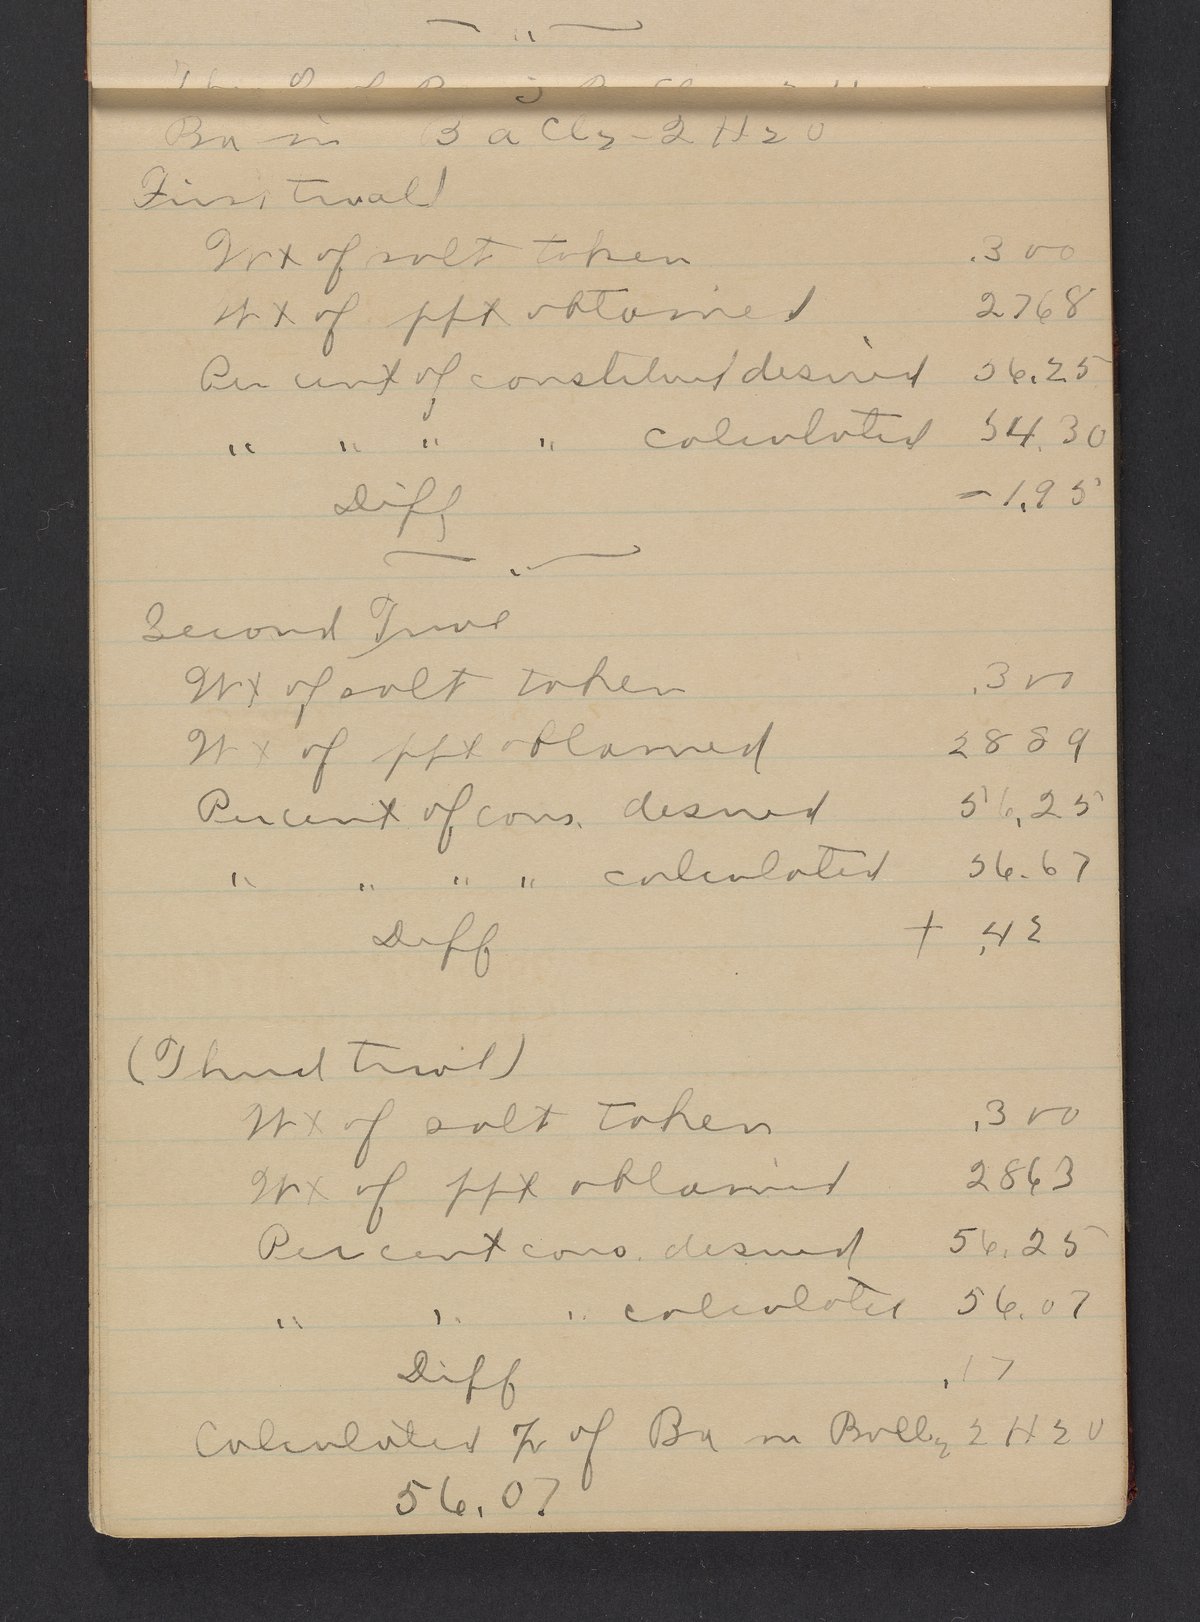 Ba in BaCl2-2H20
First trial
Wt of salt taken .300
Wt of ppt obtained 2768
Per cent of constituent desired 56.25
" " " " calculated 54.30
Diff -1.95
"
Second Trial
Wt of salt taken .300
Wt of ppt obtained 2889
Percent of cons. desired 56.25
" " " " calculated 56.67
Diff + .42
(Third trial)
Wt of salt taken .300
Wt of ppt obtained 2863
Percent cons. desired 56.25
" " " calculated 56.07
Diff .17
Calculated % of Ba in BaCl2 2H20
56.07